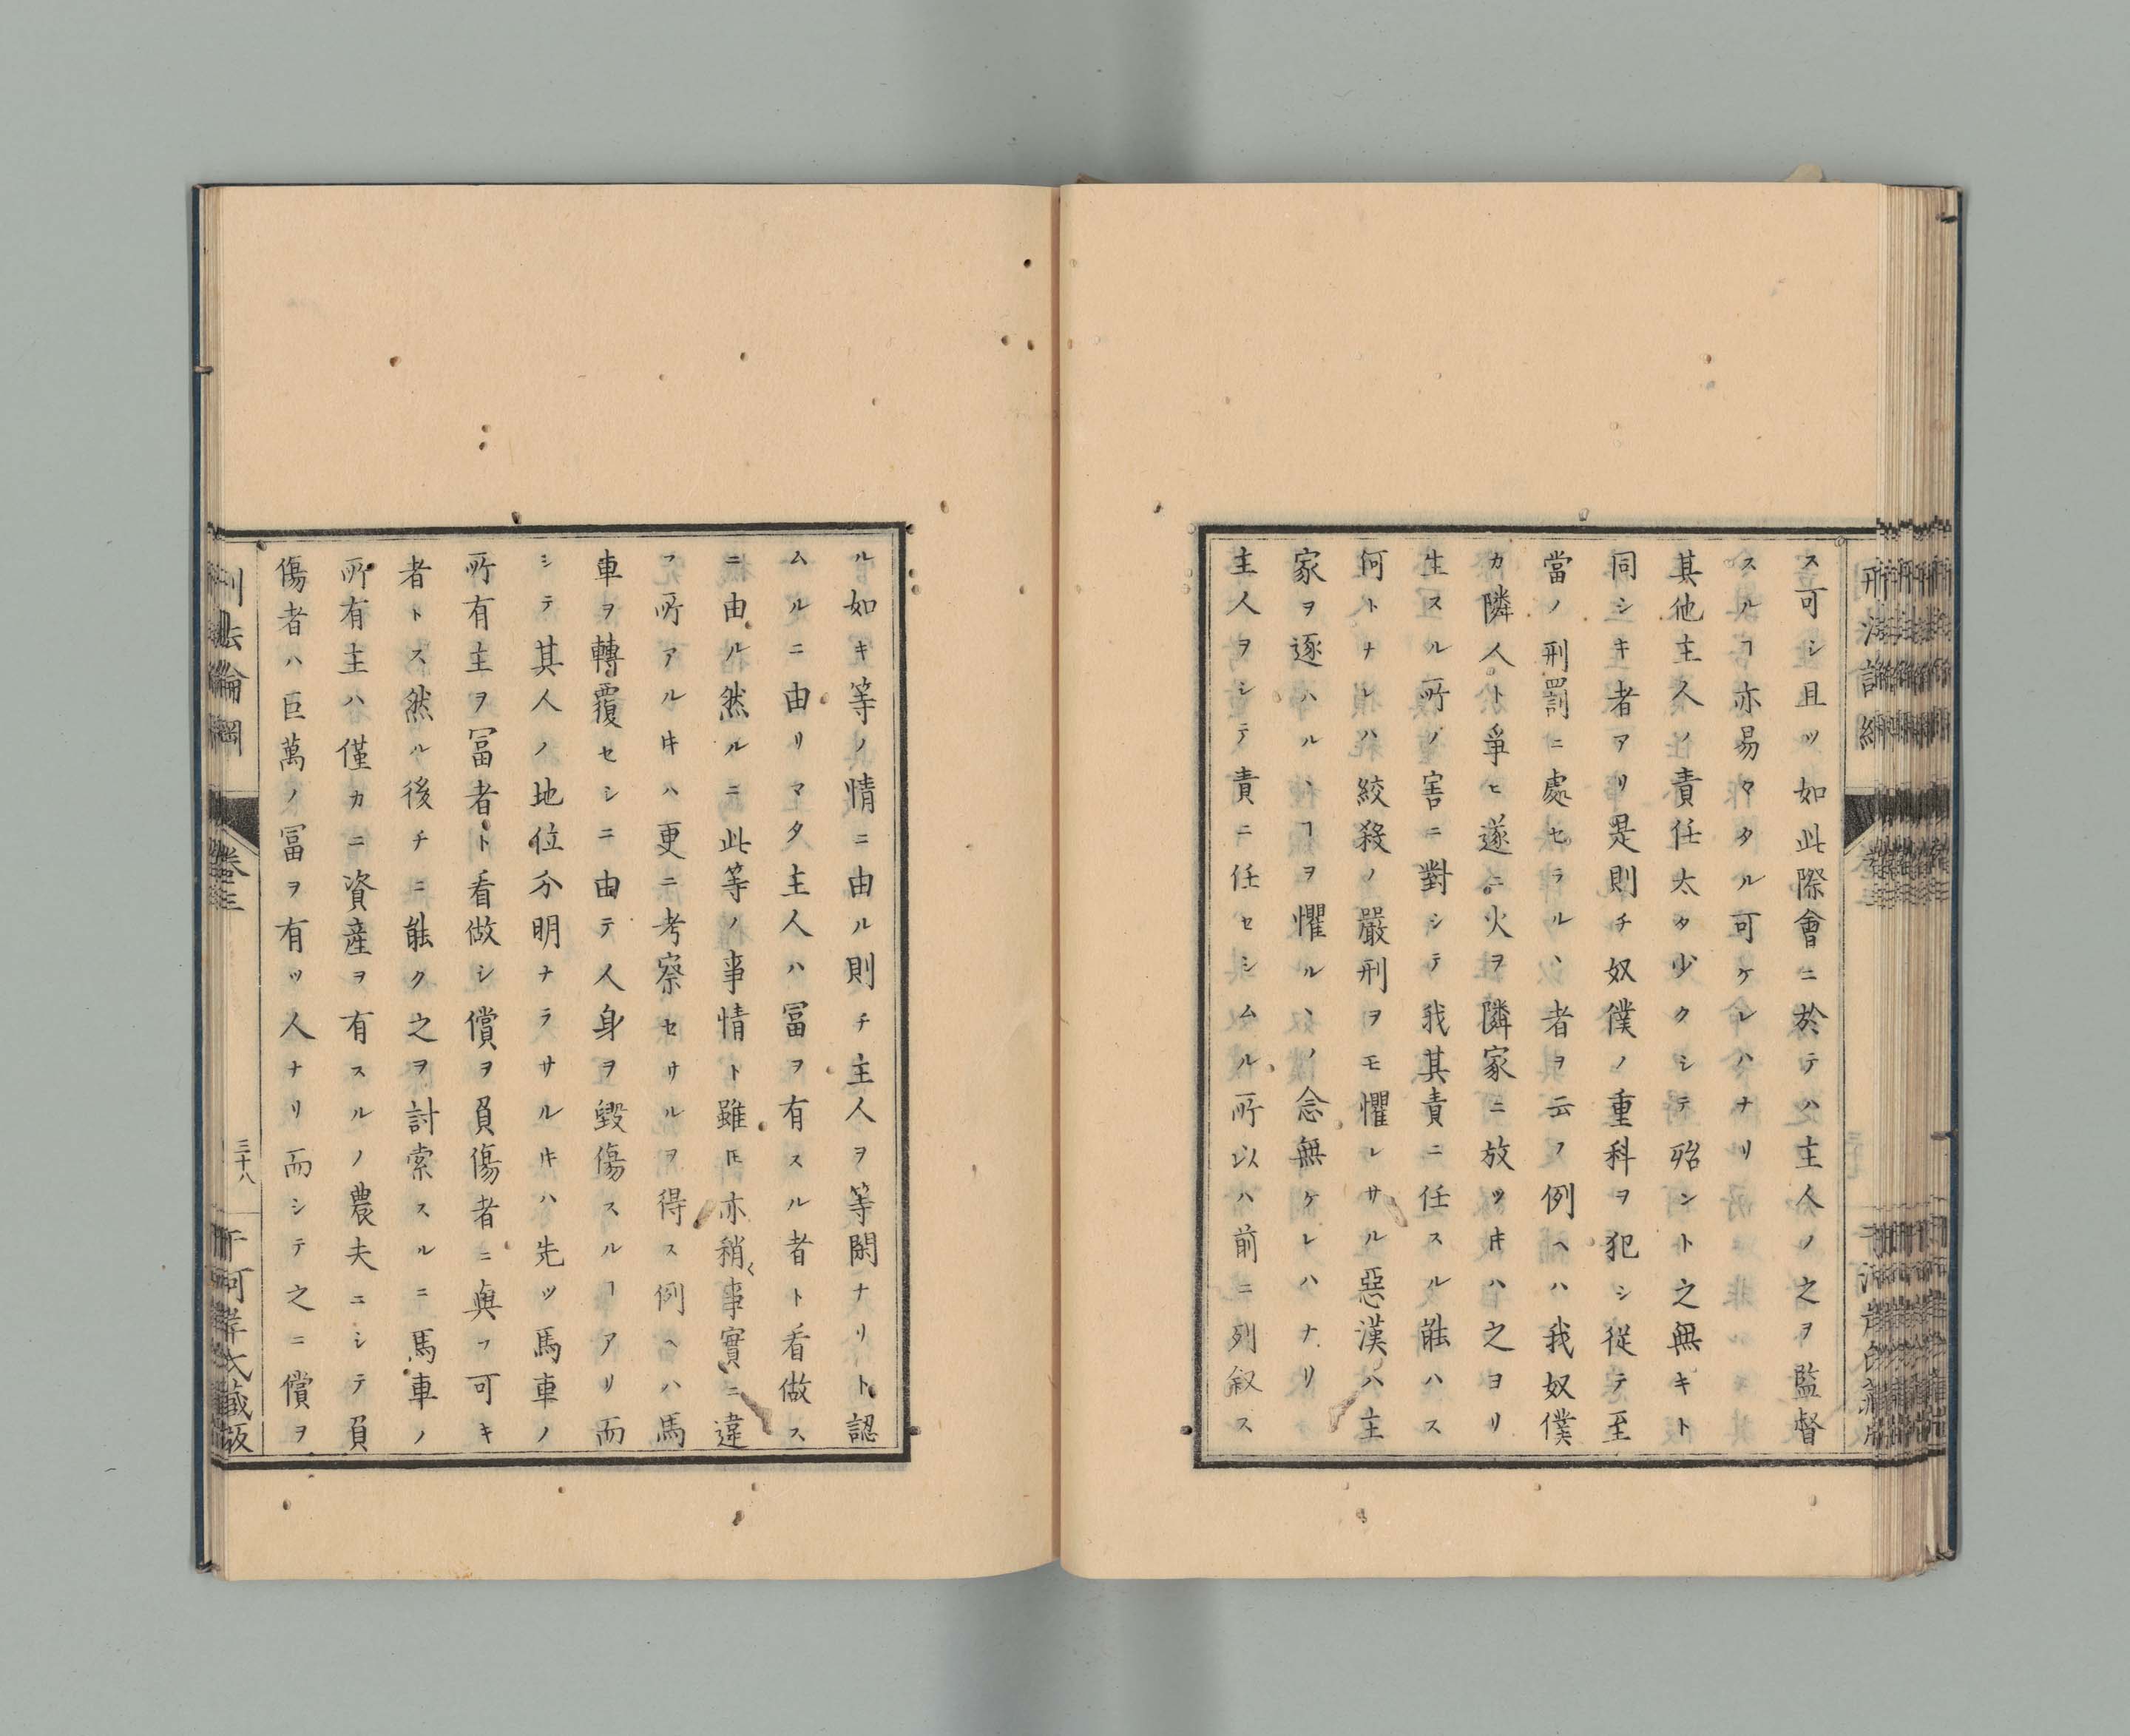 ス可シ且ツ如此際會ニ於テハ主人ノ之ヲ監督
スルヿ亦易タタル可ケレハナリ
其他主人ノ責任太タ少クシテ殆ント之無キト
同シキ者アリ是則チ奴僕ノ重科ヲ犯シ從テ至
當ノ刑罰ニ處セラル丶者ヲ云フ例ヘハ我奴僕
カ隣人ト爭ヒ遂ニ火ヲ隣家ニ放ツ𪜈ハ之ヨリ
生スル所ノ害ニ對シテ我其責ニ任スル能ハス
何トナレハ絞殺ノ嚴刑ヲモ懼レサル惡漢ハ主
家ヲ逐ハル丶ヿヲ懼ル丶ノ念無ケレハナリ
主人ヲシテ責ニ任セシムル所以ハ前ニ列叙ス
ル如キ等ノ情ニ由ル則チ主人ヲ等閑ナリト認
ムルニ由リマタ主人ハ冨ヲ有スル者ト看做ス
ニ由ル然ルニ此等ノ事情ト雖𪜈亦稍〻事實ニ違
フ所アルキハ更ニ考察セサルヲ得ス例ヘハ馬
車ヲ轉覆セシニ由テ人身ヲ毀傷スルヿアリ而
シテ其人ノ地位分明ナラサルキハ先ツ馬車ノ
所有主ヲ冨者ト看做シ償ヲ負傷者ニ與フ可キ
者トス然ル後チニ能ク之ヲ討索スルニ馬車ノ
所有主ハ僅カニ資産ヲ有スルノ農夫ニシテ負
傷者ハ巨萬ノ冨ヲ有ツ人ナリ而シテ之ニ償ヲ
刑法論綱
卷三
三十八
千河岸氏藏版